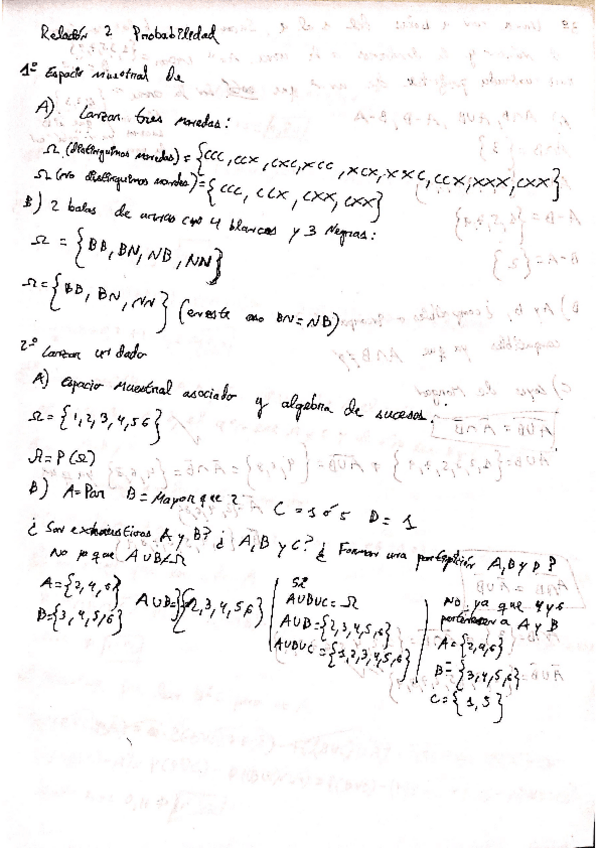 Relación 2 Probabilidad
1º Espacio muestral de
A) Lanzar tres monedas:
Ω (distinguimos monedas) = {CCC, CCX, CXC, XCC, XCX, XXC, CCX, XXX, CXX}
Ω (no distinguimos monedas) = {CCC, CCX, CXX, CXX}
B) 2 bolas de urna con 4 blancas y 3 Negras:
Ω = {BB, BN, NB, NN}
Ω = {BB, BN, NN} (en este caso BN = NB)
2º Lanzar un dado
A) Espacio muestral asociado y algebra de sucesos.
Ω = {1, 2, 3, 4, 5 6}
Ω = P(Ω)
B) A = Par B = Mayor que 2 C = 1 ó 5 D = 1
¿Son exhaustivos A y B? ¿A, B y C? ¿Forman una partición A, B y D?
No ya que A∪B≠Ω
A = {2, 4, 6} A∪B = {2, 3, 4, 5, 6}
B = {3, 4, 5, 6}
Si
A∪B∪C = Ω
A∪B = {2, 3, 4, 5, 6}
A∪B∪C = {1, 2, 3, 4, 5, 6}
No ya que 4 y 6
pertenecen a A y B
A = {2, 4, 6}
B = {3, 4, 5, 6}
C = {1, 5}